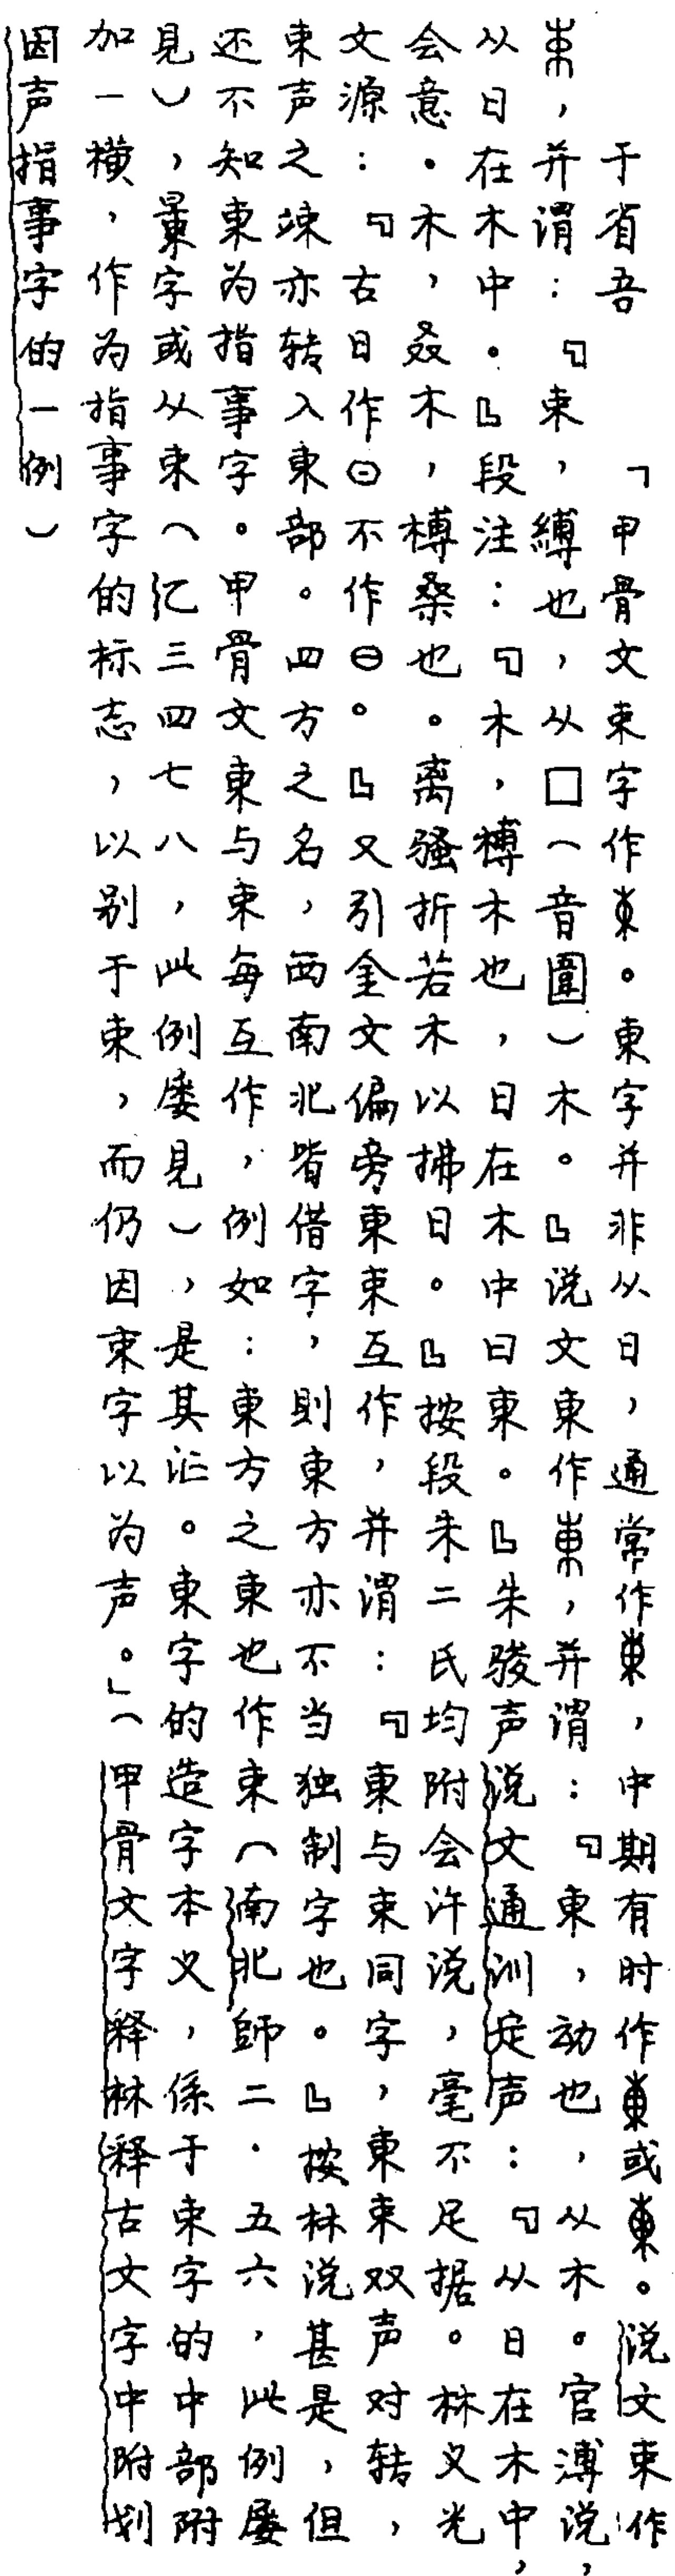 于省吾　「甲骨文束字作朿。東字并非从日，通常作東，中期有时作東或東。说文束作
束，并谓：『束，縛也，从囗（音圍）木。』说文東作東，并谓：『東，动也，从木。官溥说，
从日在木中。』段注：『木，榑木也，日在木中曰東。』朱骏声说文通训定声：『从日在木中，
会意。木，叒木，榑桑也。离骚折若木以拂日。』按段朱二氏均附会许说，毫不足据。林义光
文源：『古日作⊙不作⊖。』又引金文偏旁東束互作，并谓：『東与束同字，東束双声对转，
束声之竦亦转入東部。四方之名，西南北皆借字，則東方亦不当独制字也。』按林说甚是，但
还不知東为指事字。甲骨文東与束每互作，例如：東方之東也作束（南北師二·五六，此例屡
見），㯥字或从束（汇三四七八，此例屡見），是其证。東字的造字本义，係于束字的中部附
加一横，作为指事字的标志，以别于束，而仍因束字以为声。」（甲骨文字释林释古文字中附划
因声指事字的一例）